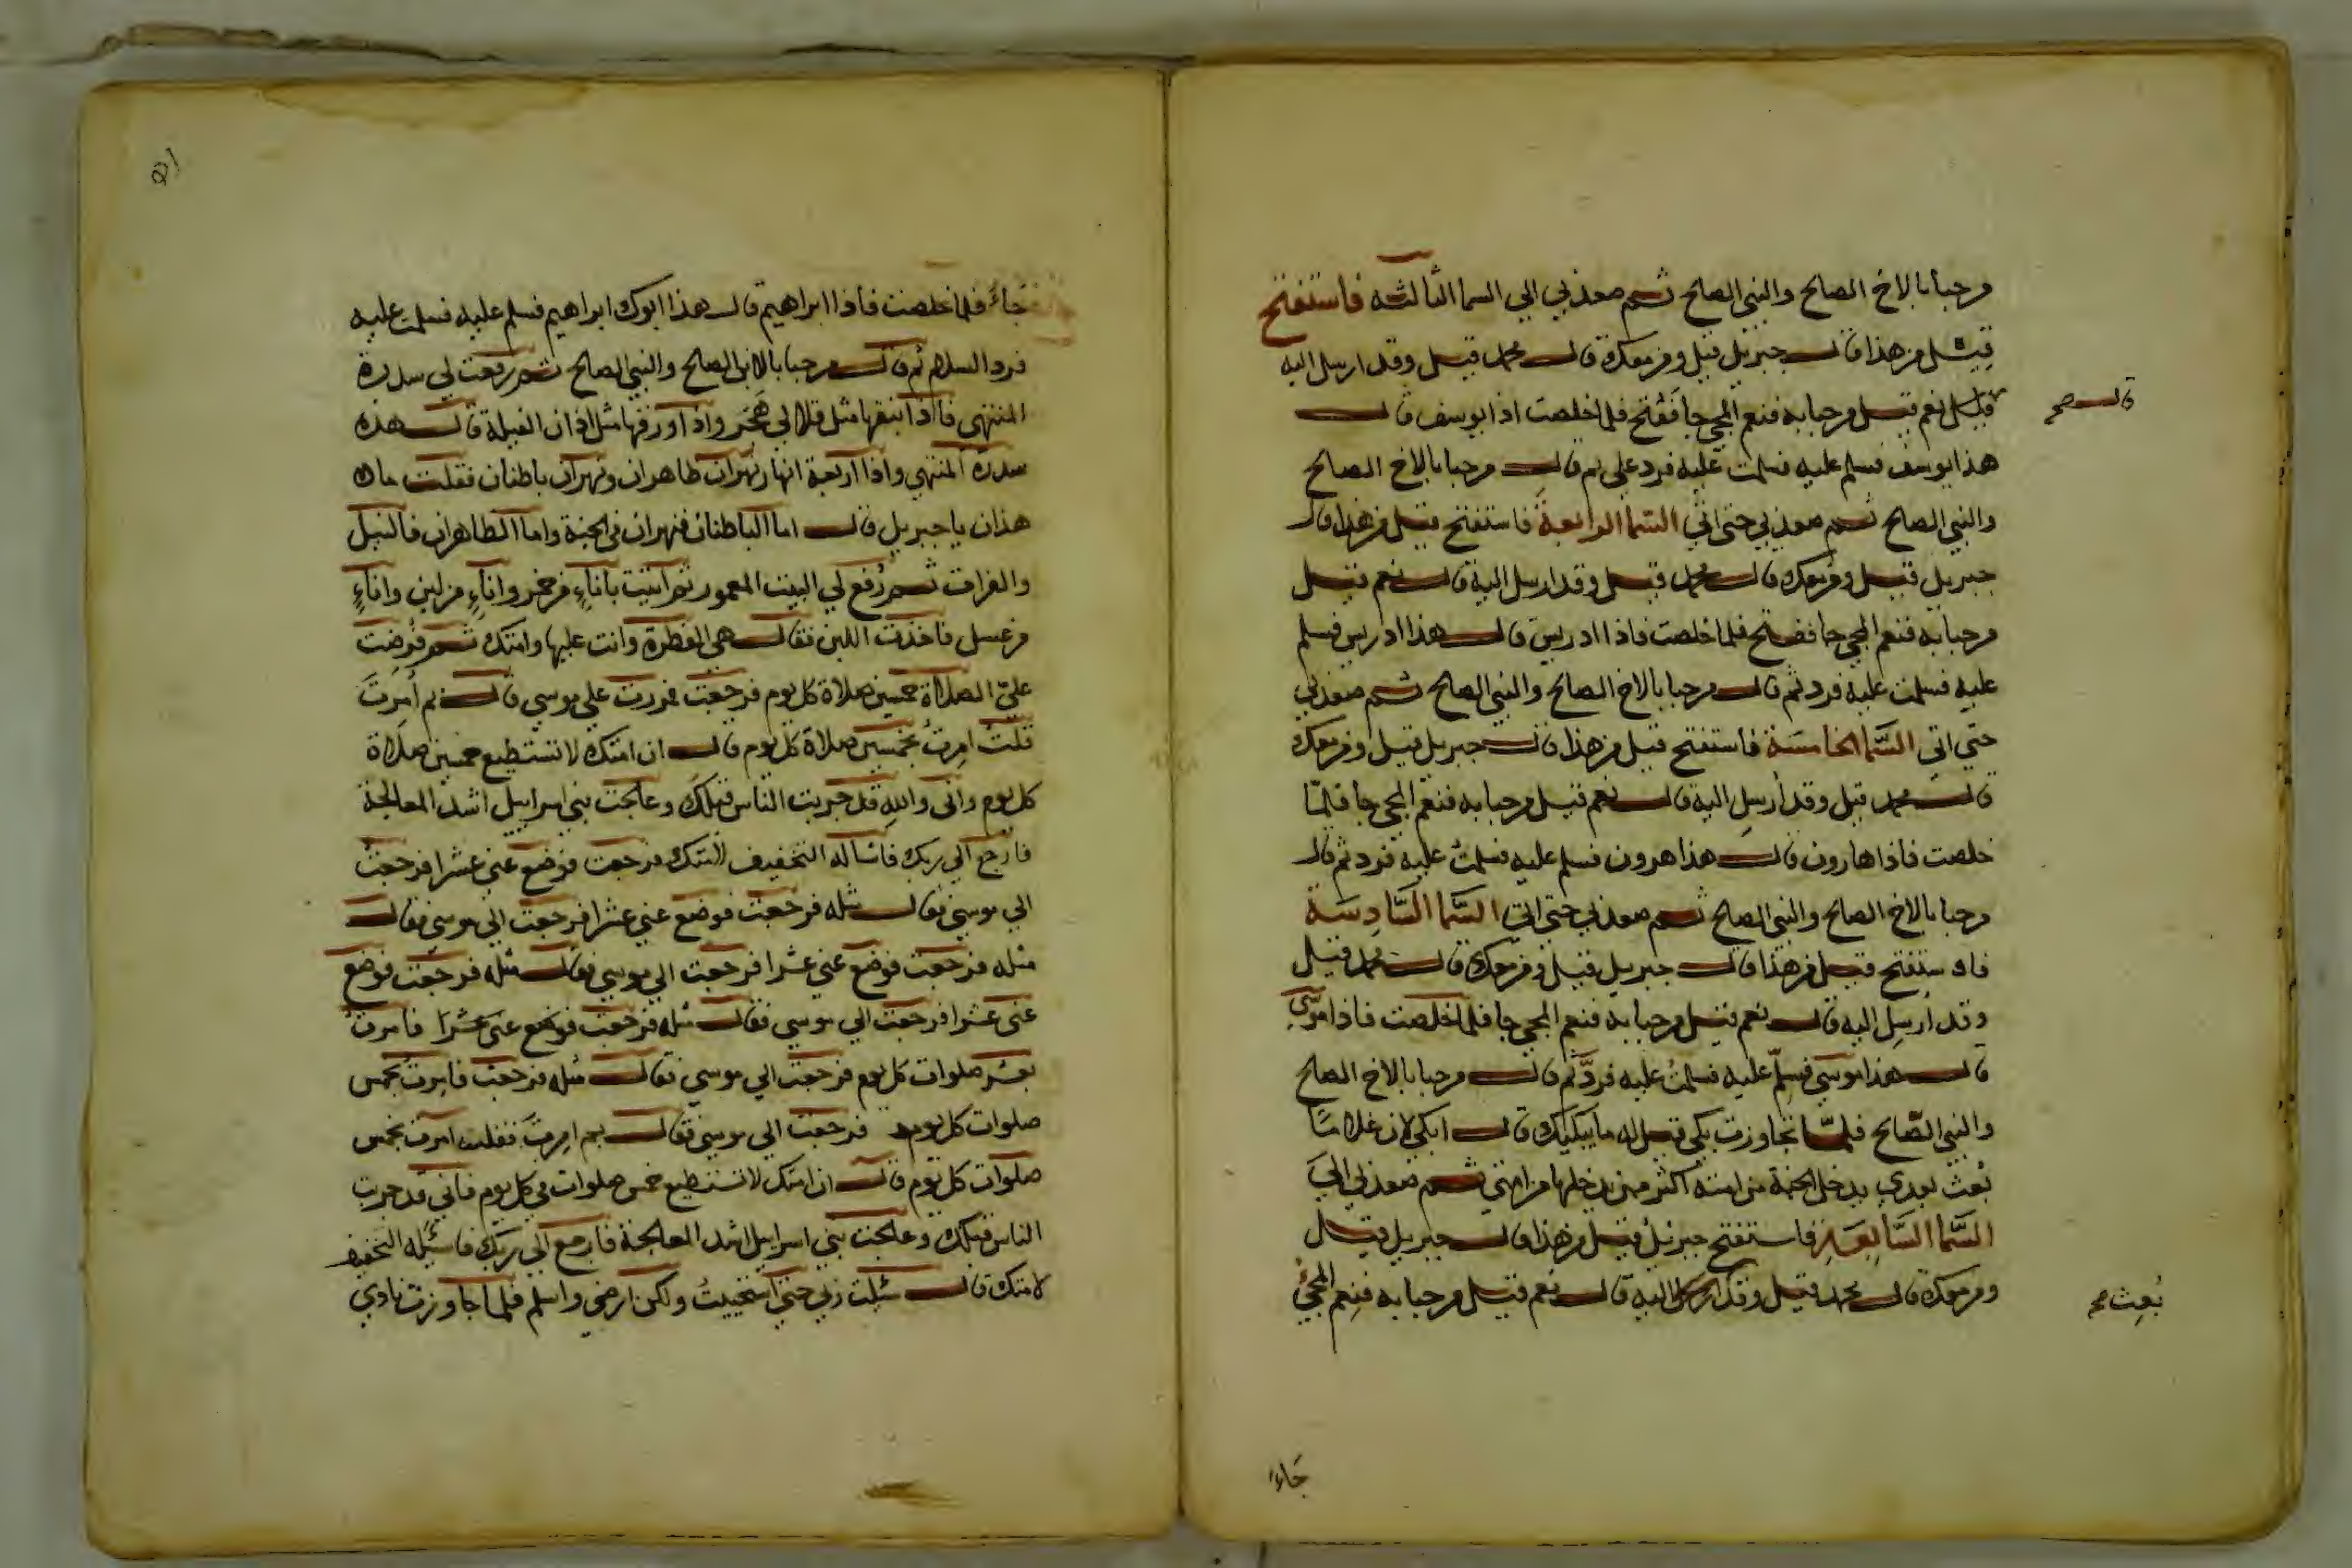 مرحبا بالاخ الصالح والنبي الصالح ثم صعد بي الي السما الثالثه فاستفتح
قيل من هذا قال جبريل قيل ومن معك قال محمد قيل وقد ارسل اليه
قيل نعم قيل مرحبا به فنعم المجي جا ففتح فلما خلصت اذا يوسف قال
قال صح
هذا يوسف فسلم عليه فسلمت عليه فرد علي ثم قال مرحبا بالاخ الصالح
والنبي الصالح ثم صعد بي حتى اتي السما الرابعة فاستفتح قيل من هذا قال
جبريل قيل ومن معك قال محمد قيل وقد ارسل اليه قال نعم قيل
مرحبا به فنعم المجي جا ففتح فلما خلصت فاذا ادريس قال هذا ادريس فسلم
عليه فسلمت عليه فرد ثم قال مرحبا بالاخ الصالح والنبي الصالح ثم صعد بي
حتي اتي السَّما الخامسَة فاستفتح قيل من هذا قال جبريل قيل ومن معك
قال محمد قيل وقد أرسِل اليه قال نعم قيل مرحبا به فنعم المجي جا فلمّا
خلصت فاذا هارون قال هذا هرون فسلم عليه فسلمتُ عليه فرد ثم قال
مرحبا بالاخ الصالح والنبي الصالح ثم صعد بي حتي اتي السَّما السَّادِسَة
فاستفتح قيل من هذا قال جبريل قيل ومن معك قال محمد قيل
وقد أرسِل اليه قال نعم قيل مرحبا به فنعم المجي جا فلما خلصت فاذا موسَي
قال هذا موسَي فسلّم عليه فسلمتُ عليه فردَّ ثم قال مرحبا بالاخ الصالح
والنبي الصَّالح فلمَّا تجاوزت بكي قيل له ما يبكيك قال ابكي لان غلامًا
بُعث بعدي يدخل الجنة من امته اكثر ممن يدخلها من امتي ثم صعد بي الي
السَّما السَّابعَة فاستفتح جبريل قيل من هذا قال جبريل قيل
ومن معك قال محمد قيل وقد اليه قال نعم قيل مرحبا به فنِعم المجئُ
بُعِث صح
جَاءَ
جَاءَ فلما خلصت فاذا ابراهيم قال هذا ابوك ابراهيم فسلم عليه فسلمت عليه
فرد السلام ثم قال مرحبا بالابن الصالح والنبي الصالح ثم رفعت لي سدرة
المنتهي فاذا نبقها مثل قلال هَجَر واذا ورقها مثل اذان الفيلة قال هذه
سدرة المنتهي واذا اربعة انهار نهران ظاهران ونهران باطنان فقلت ما
هذان يا جبريل قال اما الباطنان فنهران في الجنة واما الظاهران فالنيل
والفرات ثم رُفع لي البيت المعمور ثم اتيت باناءٍ من خمر واناءٍ من لبن واناءٍ
من عسل فاخذت اللبن فقال هي الفطرة وانت عليها وامتك ثم فُرِضت
عليّ الصلاة خمسين صلاة كل يوم فرجعت فمررت علي موسي قال بم أمِرتَ
قلتُ امِرتُ بخمسين صلاة كل يوم قال ان امتك لا تستطيع خمسين صلاة
كل يوم واني واللهِ قد جربت الناس قبلك وعالجت بني اسرايل اشد المعالجة
فارجع الي ربك فاساله التخفيف لامتك فرجعت فوضع عني عشرا فرجعتُ
الي موسي فقال مثله فرجعت فوضع عني عشرا فرجعت الي موسي فقال
مثله فرجعت فوضع عني عشرا فرجعت الي موسي فقال مثله فرجعت فوضع
عني عشرا فرجعت الي موسي فقال مثله فرجعت فوضع عني عشرًا فامرت
بعشر صلوات كل يوم فرجعت الي موسي فقال مثله فرجعت فامِرت بخمس
صلوات كل يوم فرجعت الي موسي فقال بم امِرتَ فقلت امرت بخمس
صلوات كل يوم قال ان امتك لا تستطيع خمس صلوات في كل يوم فاني قد جربت
الناس قبلك وعالجت بني اسرايل اشد المعالجة فارجع الي ربك فاسئله التخفيف
لامتك قال سُئلت ربي حتي استحييتُ ولكن ارضي واسلم فلما جاوزت نادي